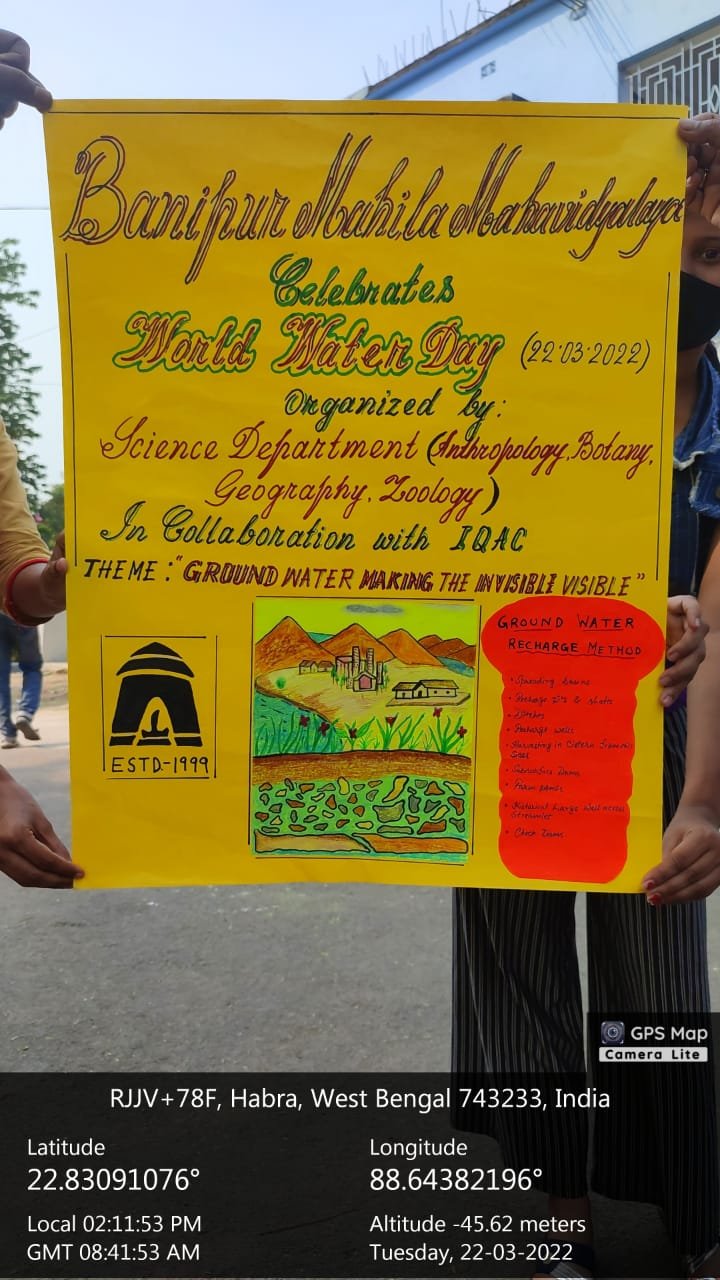 Banipur Mahila Mahavidyalaya
Celebrates
World Water Day (22.03.2022)
Organized by:
Science Department (Anthropology, Botany,
Geography, Zoology)
In Collaboration with IQAC
THEME: "GROUND WATER MAKING THE INVISIBLE VISIBLE"
ESTD-1999
GROUND WATER
RECHARGE METHOD
• Spreading basins
• Recharge Pits & Shafts
• Ditches
• Recharge wells
• Harvesting in Cistern
• Subsurface Dams
• Farm ponds
• Large Well across
• Check Dams
GPS Map
Camera Lite
RJJV+78F, Habra, West Bengal 743233, India
Latitude
22.83091076°
Longitude
88.64382196°
Local 02:11:53 PM
GMT 08:41:53 AM
Altitude -45.62 meters
Tuesday, 22-03-2022